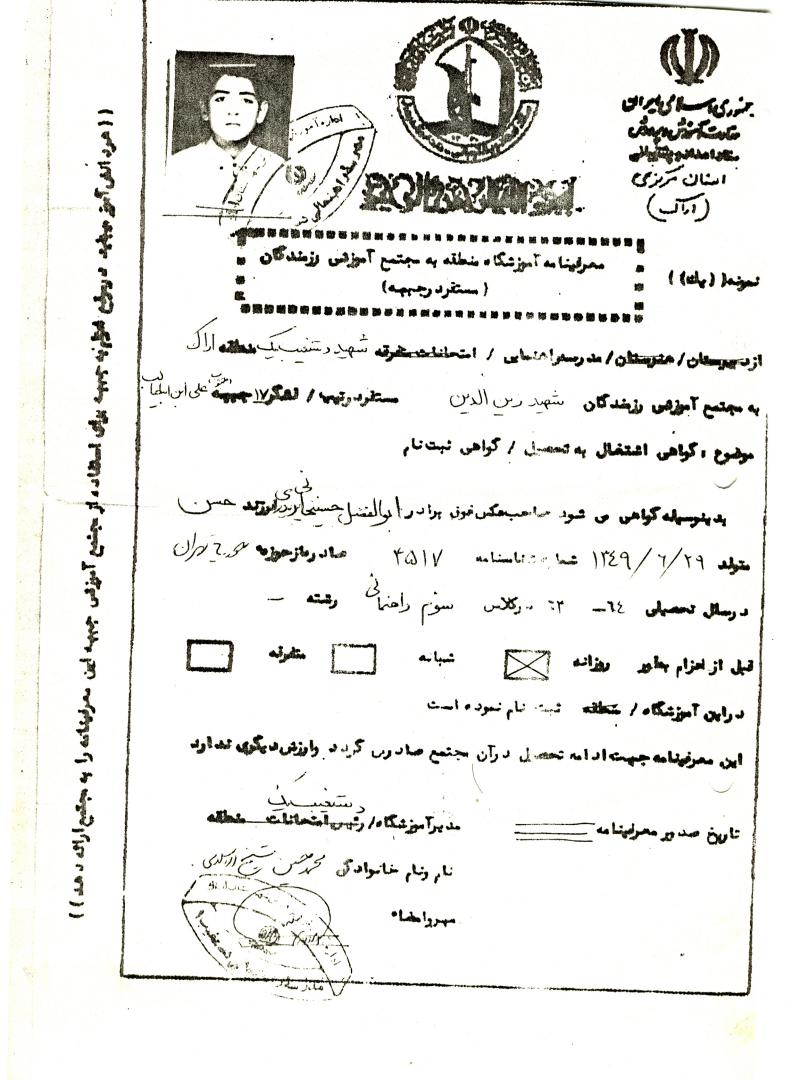 جمهوری اسلامی ایران
وزارت آموزش و پرورش
ستاد امداد و پشتیبانی
استان مرکزی
(اراک)
نمونه ((یک))
معرفینامه آموزشگاه منطقه به مجتمع آموزشی رزمندگان
(مستقر در جبهه)
از دبیرستان / هنرستان / مدرسه راهنمایی / امتحانات متفرقه شهید دستغیب یک منطقه اراک
به مجتمع آموزشی رزمندگان شهید زین الدین مستقر در تیپ / لشگر ۱۷ جبهه علی ابن ابیطالب
موضوع : گواهی اشتغال به تحصیل / گواهی ثبت نام
بدینوسیله گواهی می شود صاحب عکس فوق برادر ابوالفضل فرزند حسن
متولد ۱۳۴۹/۶/۲۹ شماره شناسنامه ۴۵۱۷ صادره از حوزه تهران
در سال تحصیلی ۶۴ - ۶۳ در کلاس سوم راهنمائی رشته -
قبل از اعزام بطور روزانه شبانه متفرقه
در این آموزشگاه / منطقه ثبت نام نموده است
این معرفینامه جهت ادامه تحصیل در آن مجتمع صادر می گردد و ارزش دیگری ندارد
دستغیب یک
تاریخ صدور معرفینامه مدیر آموزشگاه / رئیس امتحانات منطقه
نام و نام خانوادگی محمد حسن
مهر و امضاء
((هر دانش آموز میباید در موقع اعزام به جبهه برای استفاده از مجتمع آموزشی جبهه این معرفینامه را به مجتمع ارائه دهد))